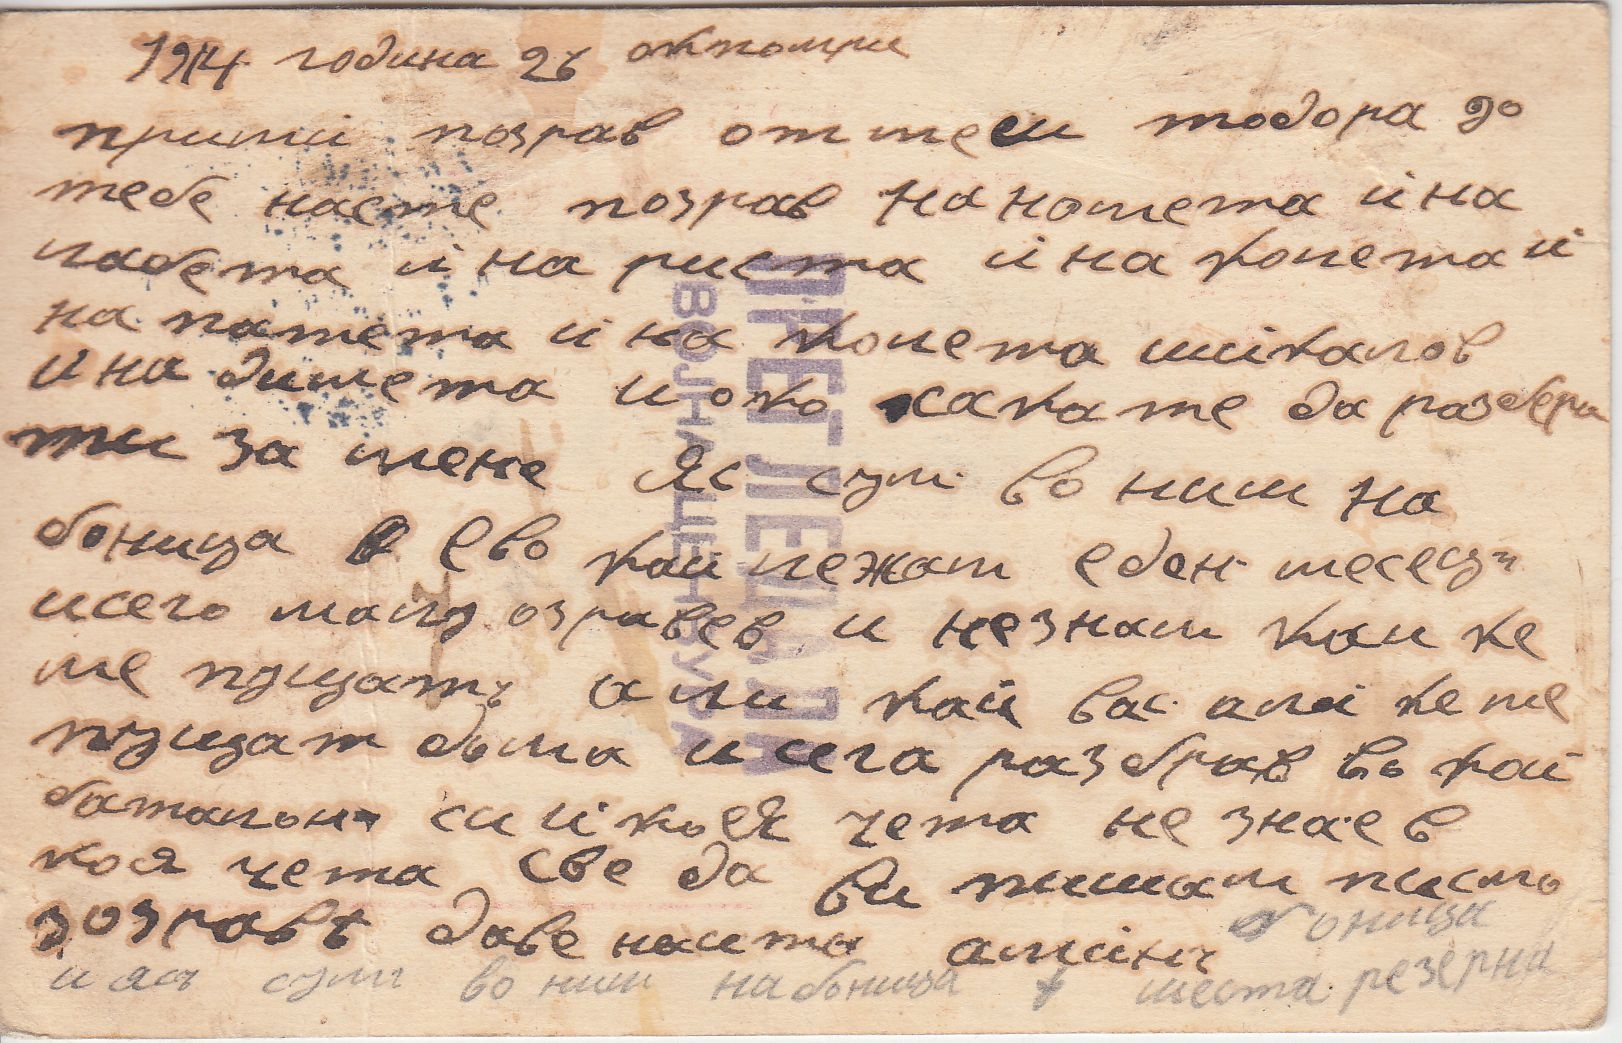 1914 година 26 октомри
прими поздрав от мене тодора до
тебе насте позрав на нотета и на
лабета и на риста и на колета и
на патета и на колета михалов
и на димета и око сакате да разбери
ти за мене Яс сум во ниш на
боница ево каи лежам еден месецъ
и сего малу оздравев и незнам кам ке
ме пущатъ али кай вас али ке ме
пущат дома и сега разбрав въ кай
баталонъ си и коеЯ чета не знаев
коя чета све да ви пишам писмо
зозравъ даве наита аминъ
боница
и ясъ сум во ниш на бьница + шеста резерна
ПРЕГЛЕДАЛА
ВОЈНА ЦЕНЗУРА